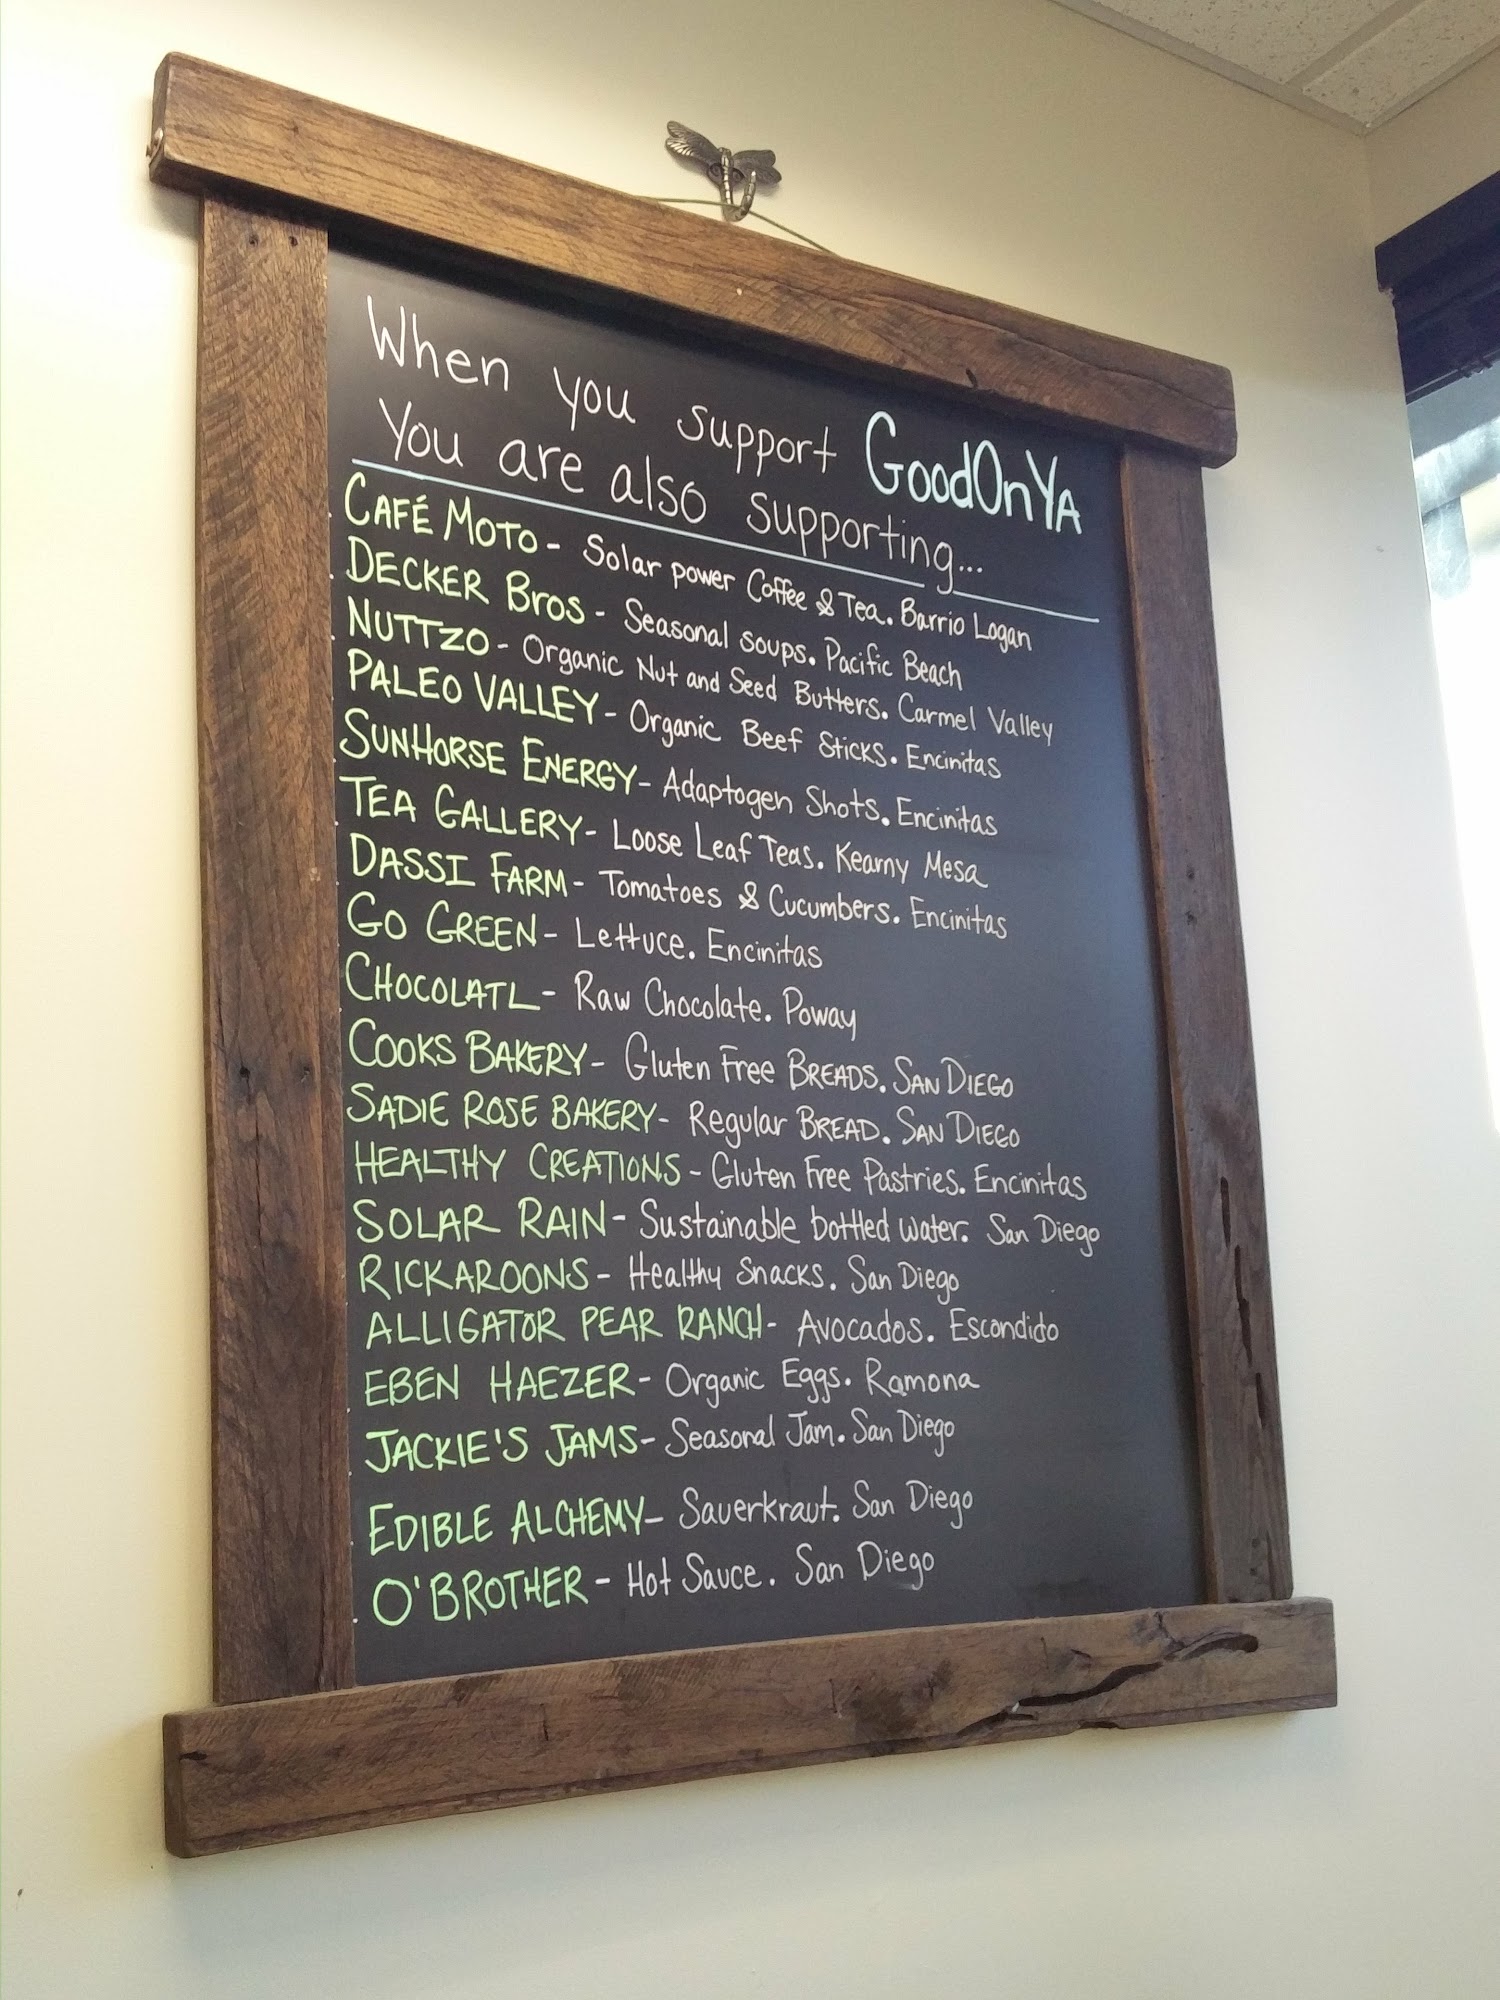 When you support GoodOnYA
You are also supporting...
CAFÉ MOTO - Solar power Coffee & Tea. Barrio Logan
DECKER BROS - Seasonal soups. Pacific Beach
NUTTZO - Organic Nut and Seed Butters. Carmel Valley
PALEO VALLEY - Organic Beef Sticks. Encinitas
SUNHORSE ENERGY - Adaptogen Shots. Encinitas
TEA GALLERY - Loose Leaf Teas. Kearny Mesa
DASSI FARM - Tomatoes & Cucumbers. Encinitas
GO GREEN - Lettuce. Encinitas
CHOCOLATL - Raw Chocolate. Poway
COOKS BAKERY - Gluten Free BREADS. SAN DIEGO
SADIE ROSE BAKERY - Regular BREAD. SAN DIEGO
HEALTHY CREATIONS - Gluten Free Pastries. Encinitas
SOLAR RAIN - Sustainable bottled water. San Diego
RICKAROONS - Healthy Snacks. San Diego
ALLIGATOR PEAR RANCH - Avocados. Escondido
EBEN HAEZER - Organic Eggs. Ramona
JACKIE'S JAMS - Seasonal Jam. San Diego
EDIBLE ALCHEMY - Sauerkraut. San Diego
O'BROTHER - Hot Sauce. San Diego